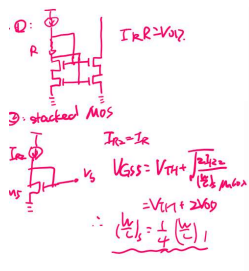 ①:
I_R R = V_OV.
R
②: stacked MOS
I_R2 = I_R
I_R2
V_GS5 = V_TH + √(2I_R2 / (W/L)_5 μnCox)
V_5
M5
= V_TH + 2V_OD
∴ (W/L)_5 = 1/4 (W/L)_1